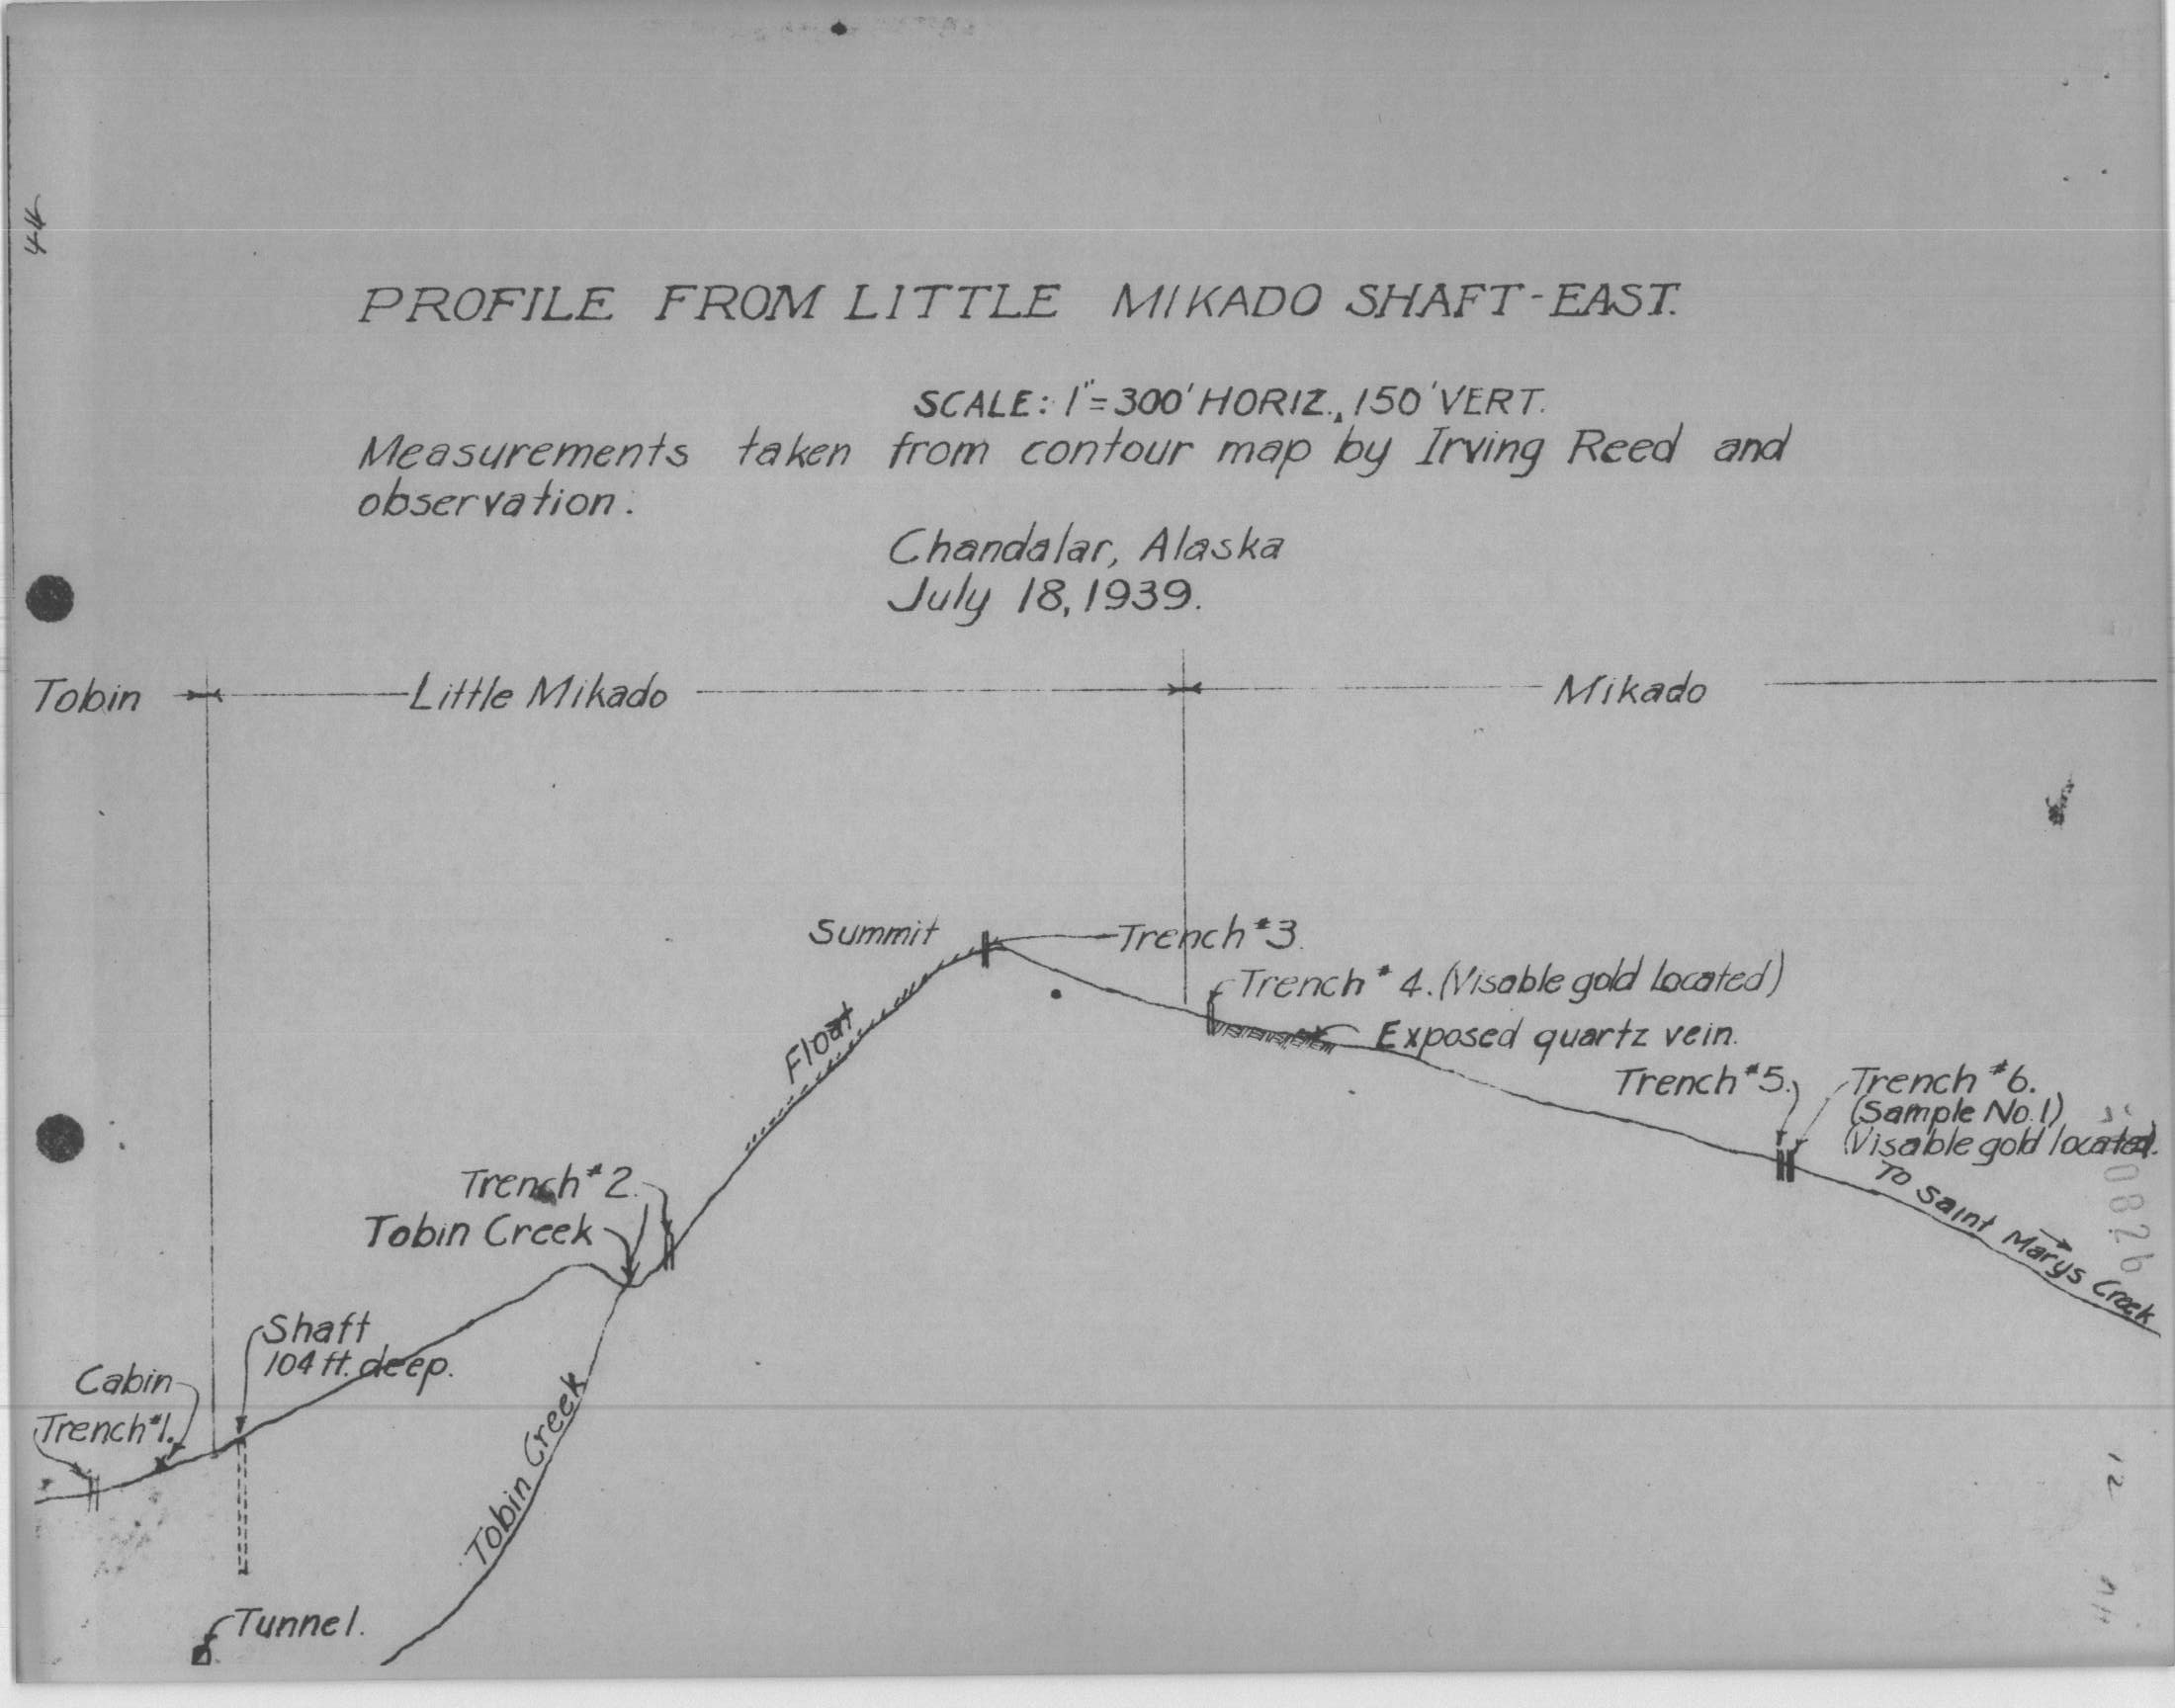 44
PROFILE FROM LITTLE MIKADO SHAFT-EAST.
SCALE: 1"=300' HORIZ., 150' VERT.
Measurements taken from contour map by Irving Reed and
observation.
Chandalar, Alaska
July 18, 1939.
Tobin
Little Mikado
Mikado
Summit
Trench #3.
Trench # 4. (Visable gold Located)
Exposed quartz vein.
Float
Trench #5.
Trench #6.
(Sample No. 1)
(Visable gold located).
To Saint Marys Creek
Trench #2.
Tobin Creek
Shaft
104 ft. deep.
Cabin
Trench #1.
Tobin Creek
Tunnel.
12